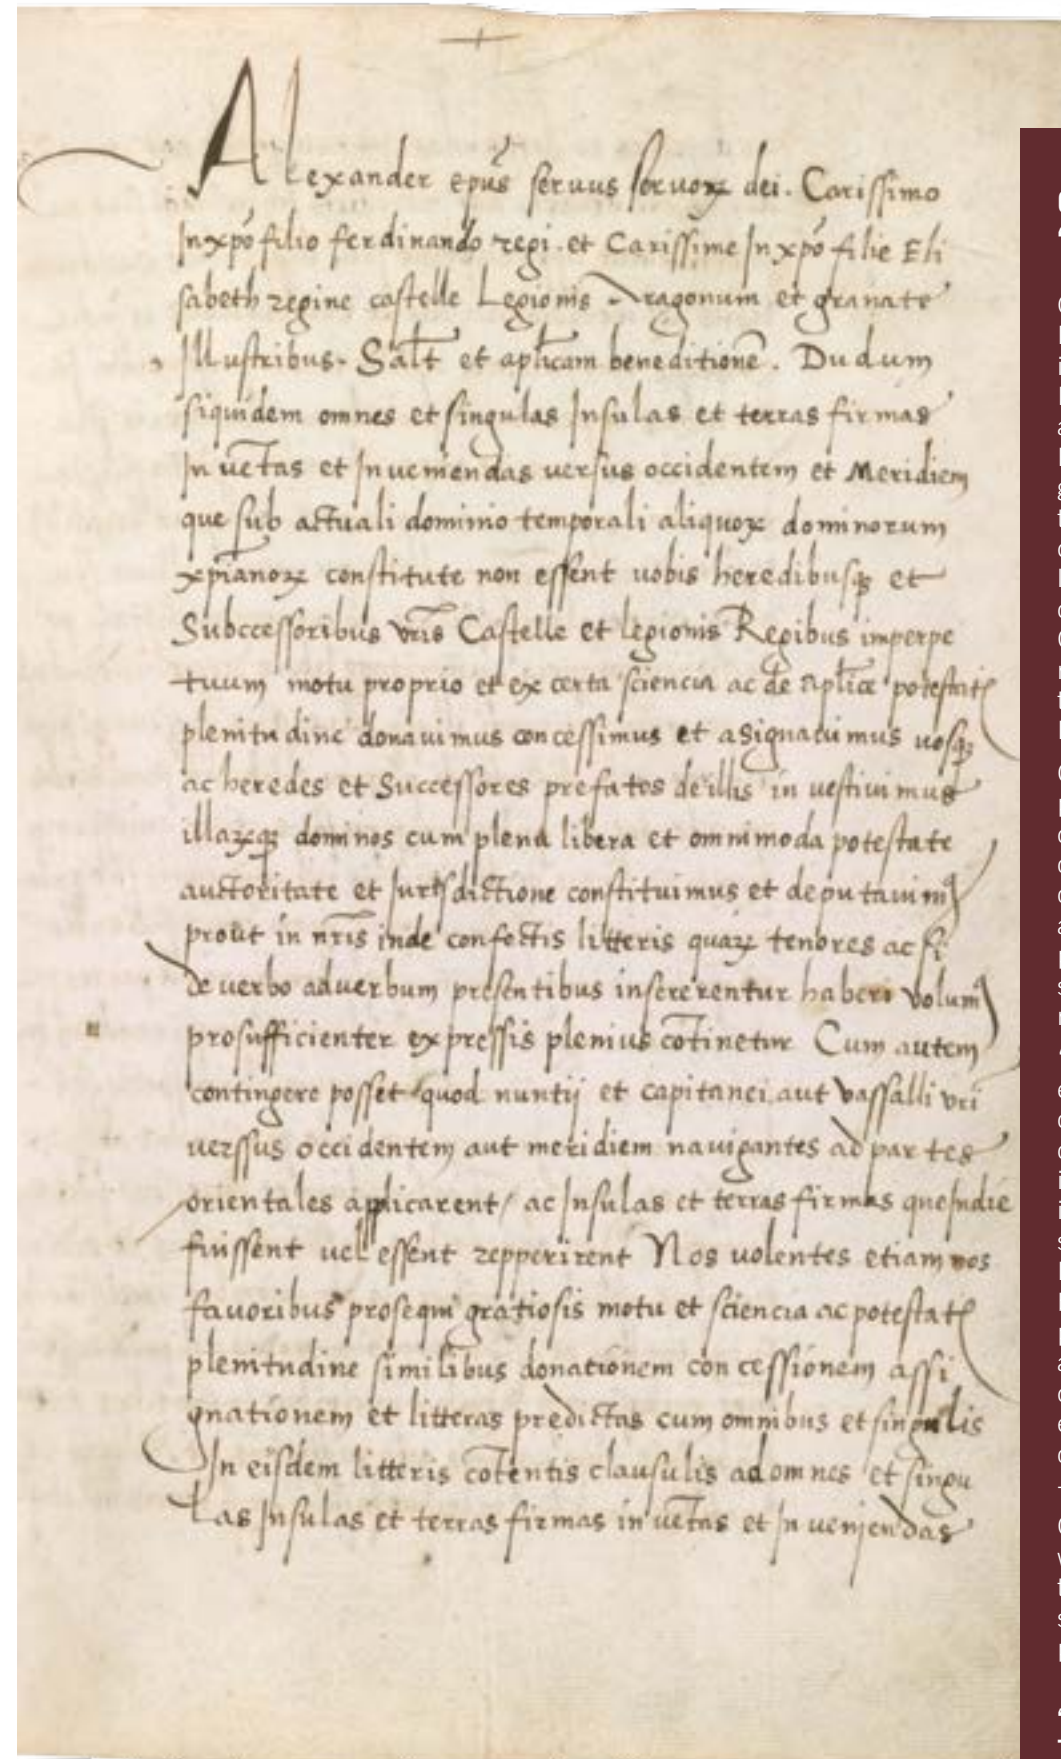 Alexander epūs seruus seruoꝝ dei. Carissimo
In xpō filio ferdinando regi. et Carissime In xpō filie Eli
sabeth regine castelle Legionis Aragonum et granate
Illustribus. Salt̄ et aplicam beneditionē. Dudum
siquidem omnes et singulas Insulas et terras firmas
In uētas et In ueniendas versus occidentem et Meridiem
que sub actuali dominio temporali aliquoꝝ dominorum
xpianoꝝ constitute non essent uobis heredibusqꝫ et
Subccessoribus vris Castelle et legionis Regibus imperpe
tuum motu proprio et ex certa sciencia ac de aplice potestatꝭ
plenitudine donauimus concessimus et asignauimus uosqꝫ
ac heredes et Successores prefatos de illis in uestiuimus
illaꝝqꝫ dominos cum plena libera et omnimoda potestate
auctoritate et Jurisdictione constituimus et deputauimꝰ
prout in nris inde confectis litteris quaꝝ tenores ac si
de uerbo aduerbum presentibus insererentur haberi volumꝰ
prosufficienter expressis plenius cōtinetur Cum autem
contingere posset quod nuntij et capitanei aut vassalli vri
verssus occidentem aut meridiem nauigantes ad partes
orientales applicarent/ ac Insulas et terras firmas que Indie
fuissent uel essent repperirent Nos uolentes etiam uos
fauoribus prosequi gratiosis motu et sciencia ac potestatꝭ
plenitudine similibus donationem concessionem assi
gnationem et litteras predictas cum omnibus et singulis
In eisdem litteris cōtentis clausulis ad omnes et singu
las Insulas et terras firmas in uētas et In ueniendas